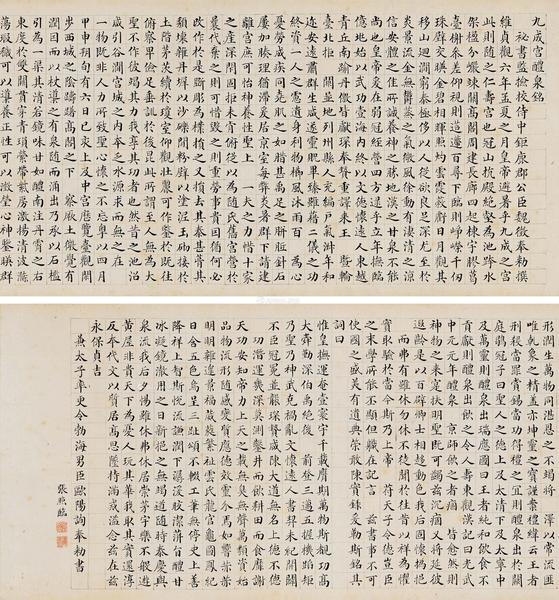 九成宮醴泉銘
秘書監檢校侍中鉅鹿郡公臣魏徵奉勅撰
維貞觀六年孟夏之月皇帝避暑乎九成之宮
此則隨之仁壽宮也冠山抗殿絕壑為池跨水
架楹分巖竦闕高閣周建長廊四起棟宇膠葛
臺榭參差仰視則迢遰百尋下臨則崢嶸千仞
珠璧交暎金碧相暉照灼雲霞蔽虧日月觀其
移山迴澗窮泰極侈以人從欲良足深尤至於
炎景流金無鬱蒸之氣微風徐動有淒清之涼
信安體之佳所誠養神之勝地漢之甘泉不能
尚也皇帝爰在弱冠經營四方逮乎立年撫臨
億兆始以武功壹海內終以文德懷遠人東越
青丘南踰丹徼皆獻琛奉贄重譯來王暨輪
臺北拒闕並地列州縣人充編戶氣淑年和
迩安遠肅群生咸遂靈貺畢臻雖藉二儀之功
終資一人之慮遺身利物櫛風沐雨百為心
憂勞成疾同堯肌之如腊甚禹足之胼胝針石
屢加腠理猶滯爰居京室每弊炎暑群下請建
離宮庶可怡神養性聖上一夫之力惜十家
之產深閉固拒未肯俯從以為隨氏舊宮營於
曩代棄之則可惜毀之則重勞事貴因循何必
改作於是斲彫為樸損之又損去其泰甚葺其
頹壞雜丹墀以沙礫間粉壁以塗泥玉砌接於
土階茅茨續於瓊室仰觀壯麗可作鑒於既往
俯察卑儉足垂訓於後昆此所謂至人無為大
聖不作彼竭其力我享其功者也然昔之池沼
咸引谷澗宮城之內本乏水源求而無之在
一物既非人力所致聖心懷之不忘粵以四月
甲申朔旬有六日己亥上及中宮歷覽臺觀閒
步西城之陰躊躇高閣之下察厥土微覺有
潤因而以杖導之有泉隨而涌出乃承以石檻
引為一渠其清若鏡味甘如醴南注丹霄之右
東度於雙闕貫穿青瑣縈帶紫房激揚清波滌
蕩瑕穢可以導養正性可以澂瑩心神鑒暎群
形潤生萬物同湛恩之不竭將澤以常流匪
唯乾象之精蓋亦坤靈之寶謹案禮緯云王者
刑殺當罪賞錫當功得禮之宜則醴泉出於闕
庭鶡冠子曰聖人之德上及太清下及太寧中
及萬靈則醴泉出瑞應圖曰王者純和飲食不
貢獻則醴泉出飲之令人壽東觀漢記曰光武
中元元年醴泉京師飲之者痼皆愈然則
神物之來寔扶明聖既可蠲茲沉痼又將延彼
遐齡是以百辟卿士相趨動色我后固懷撝挹
而弗有雖休勿休不徒聞於往昔以祥為懼
實取驗於當今斯乃上帝符天子令德豈臣
之末學所能丕顯但職在記言茲書事不可
使國之盛美有遺典策敢陳實錄爰勒斯銘其
詞曰
惟皇撫運奄壹寰宇千載膺期萬物斯覩功高
大舜勤深伯禹絕後前登三邁五握機蹈矩
乃聖乃神武克禍亂文懷遠人書契未紀開闢
不臣冠冕並襲琛贄咸陳大道無名上德不德
功潛運幾深莫測鑿井而飲耕田而食靡謝
天功安知帝力上天之載無臭無聲萬類資始
品物流形隨感變質應德效靈介焉如響赫赫
明明雜遝景福葳蕤繁祉雲氏龍宮龜圖鳳紀
日含五色烏呈三趾頌不輟工筆無停史上善
降祥上智斯悅流謙潤下潺湲皎潔蓱旨醴甘
冰凝鏡澈用之日新挹之無竭道隨時泰慶與
泉流我后夕惕雖休弗休居崇茅宇樂不般遊
黃屋非貴天下為憂人玩其華我取其實還淳
反本代文以質居高思墜持滿戒溢念茲在茲
永保貞吉
兼太子率更令勃海男臣歐陽詢奉勅書
張照臨